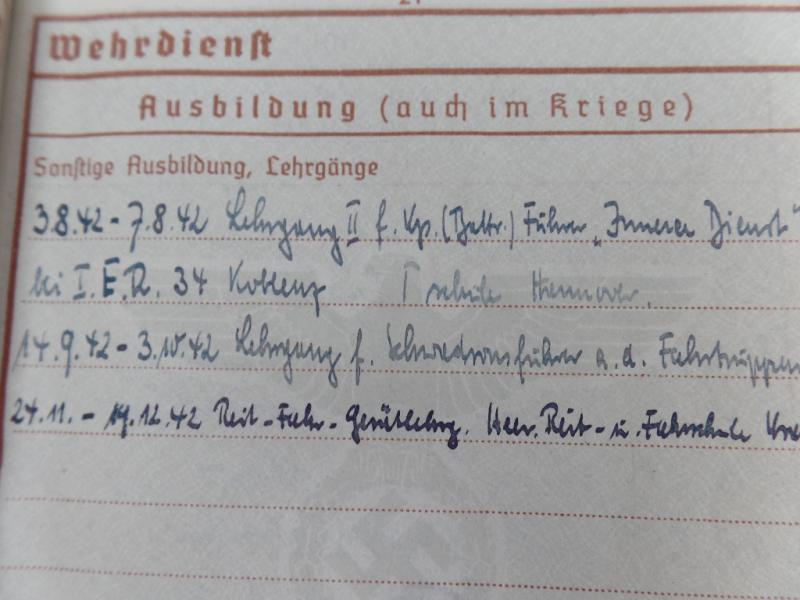 Wehrdienst
Ausbildung (auch im Kriege)
Sonstige Ausbildung, Lehrgänge
3.8.42 - 7.8.42 Lehrgang II f. Kp. (Battr.) Führer „Innerer Dienst"
bei I.E.R. 34 Koblenz schule Hannover.
14.9.42 - 3.10.42 Lehrgang f. Schwadronsführer a. d. Fahrtruppen
24.11. - 19.12.42 Reit-Fahr- Heer. Reit- u. Fahrschule